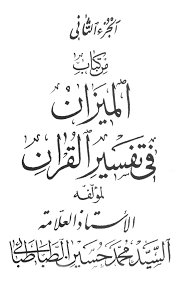 الجزء الثاني
من كتاب
الميزان
في تفسير القرآن
لمؤلفه
الأستاذ العلامة
السيد محمد حسين الطباطبائي